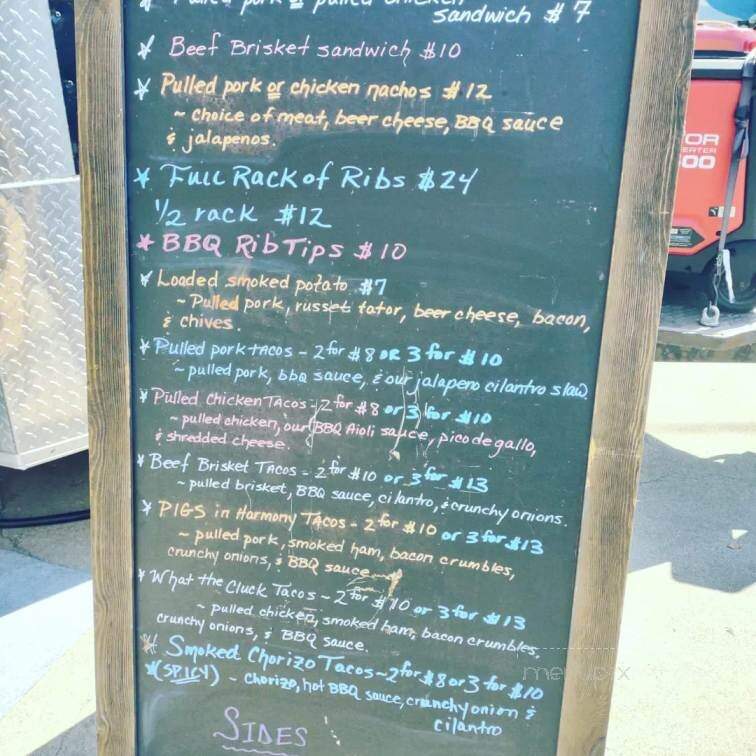 Pulled pork or pulled chicken
sandwich $7
* Beef Brisket sandwich $10
* Pulled pork or chicken nachos $12
~ choice of meat, beer cheese, BBQ sauce
& jalapenos.
* Full Rack of Ribs $24
1/2 rack $12
* BBQ Rib Tips $10
* Loaded smoked potato $7
~ Pulled pork, russet tator, beer cheese, bacon,
& chives.
* Pulled pork tacos - 2 for $8 OR 3 for $10
~ pulled pork, bbq sauce, & our jalapeno cilantro slaw
* Pulled Chicken Tacos - 2 for $8 or 3 for $10
~ pulled chicken, our BBQ Aioli sauce, pico de gallo,
& shredded cheese.
* Beef Brisket Tacos - 2 for $10 or 3 for $13
~ pulled brisket, BBQ sauce, cilantro, & crunchy onions.
* PIGS in Harmony Tacos - 2 for $10 or 3 for $13
~ pulled pork, smoked ham, bacon crumbles,
crunchy onions, & BBQ sauce
* What the Cluck Tacos ~ 2 for $10 or 3 for $13
~ pulled chicken, smoked ham, bacon crumbles,
crunchy onions, & BBQ sauce.
* Smoked Chorizo Tacos ~ 2 for $8 or 3 for $10
*(SPICY) ~ chorizo, hot BBQ sauce, crunchy onion &
cilantro
SIDES
OR
00